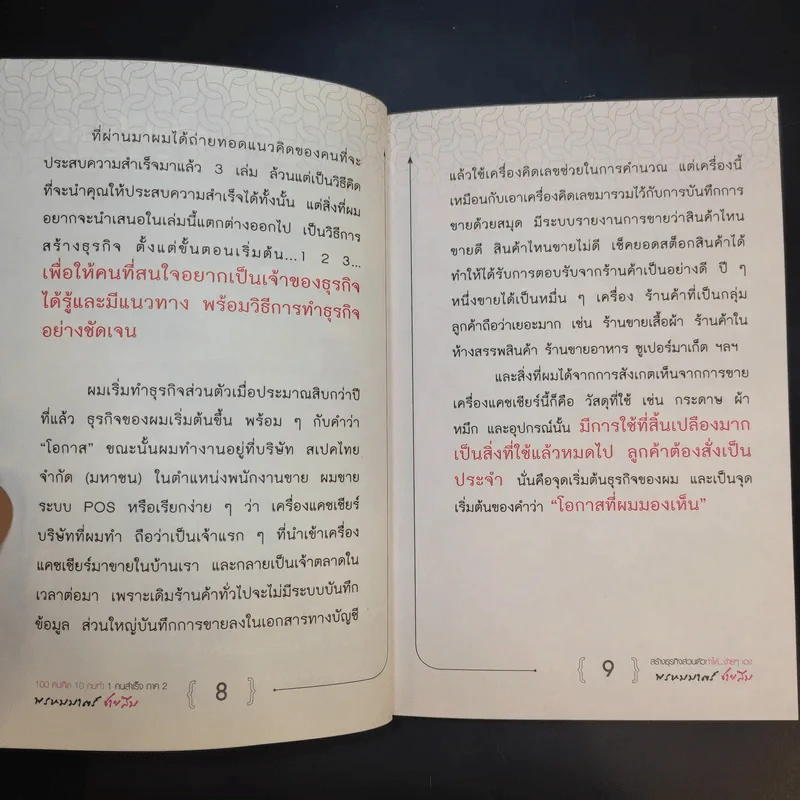 ที่ผ่านมาผมได้ถ่ายทอดแนวคิดของคนที่จะ
ประสบความสำเร็จมาแล้ว 3 เล่ม ล้วนแต่เป็นวิธีคิด
ที่จะนำคุณให้ประสบความสำเร็จได้ทั้งนั้น แต่สิ่งที่ผม
อยากจะนำเสนอในเล่มนี้แตกต่างออกไป เป็นวิธีการ
สร้างธุรกิจ ตั้งแต่ขั้นตอนเริ่มต้น...1 2 3...
เพื่อให้คนที่สนใจอยากเป็นเจ้าของธุรกิจ
ได้รู้และมีแนวทาง พร้อมวิธีการทำธุรกิจ
อย่างชัดเจน
ผมเริ่มทำธุรกิจส่วนตัวเมื่อประมาณสิบกว่าปี
ที่แล้ว ธุรกิจของผมเริ่มต้นขึ้น พร้อม ๆ กับคำว่า
“โอกาส” ขณะนั้นผมทำงานอยู่ที่บริษัท สเปคไทย
จำกัด (มหาชน) ในตำแหน่งพนักงานขาย ผมขาย
ระบบ POS หรือเรียกง่าย ๆ ว่า เครื่องแคชเชียร์
บริษัทที่ผมทำ ถือว่าเป็นเจ้าแรก ๆ ที่นำเข้าเครื่อง
แคชเชียร์มาขายในบ้านเรา และกลายเป็นเจ้าตลาดใน
เวลาต่อมา เพราะเดิมร้านค้าทั่วไปจะไม่มีระบบบันทึก
ข้อมูล ส่วนใหญ่บันทึกการขายลงในเอกสารทางบัญชี
100 คนคิด 10 คนทำ 1 คนสำเร็จ ภาค 2
พรหมมาตร์ ชายสิม
8
แล้วใช้เครื่องคิดเลขช่วยในการคำนวณ แต่เครื่องนี้
เหมือนกับเอาเครื่องคิดเลขมารวมไว้กับการบันทึกการ
ขายด้วยสมุด มีระบบรายงานการขายว่าสินค้าไหน
ขายดี สินค้าไหนขายไม่ดี เช็คยอดสต็อกสินค้าได้
ทำให้ได้รับการตอบรับจากร้านค้าเป็นอย่างดี ปี ๆ
หนึ่งขายได้เป็นหมื่น ๆ เครื่อง ร้านค้าที่เป็นกลุ่ม
ลูกค้าถือว่าเยอะมาก เช่น ร้านขายเสื้อผ้า ร้านค้าใน
ห้างสรรพสินค้า ร้านขายอาหาร ซูเปอร์มาเก็ต ฯลฯ
และสิ่งที่ผมได้จากการสังเกตเห็นจากการขาย
เครื่องแคชเชียร์นี้ก็คือ วัสดุที่ใช้ เช่น กระดาษ ผ้า
หมึก และอุปกรณ์นั้น มีการใช้ที่สิ้นเปลืองมาก
เป็นสิ่งที่ใช้แล้วหมดไป ลูกค้าต้องสั่งเป็น
ประจำ นั่นคือจุดเริ่มต้นธุรกิจของผม และเป็นจุด
เริ่มต้นของคำว่า “โอกาสที่ผมมองเห็น”
9
สร้างธุรกิจส่วนตัวทำได้...ง่ายๆ เอง
พรหมมาตร์ ชายสิม